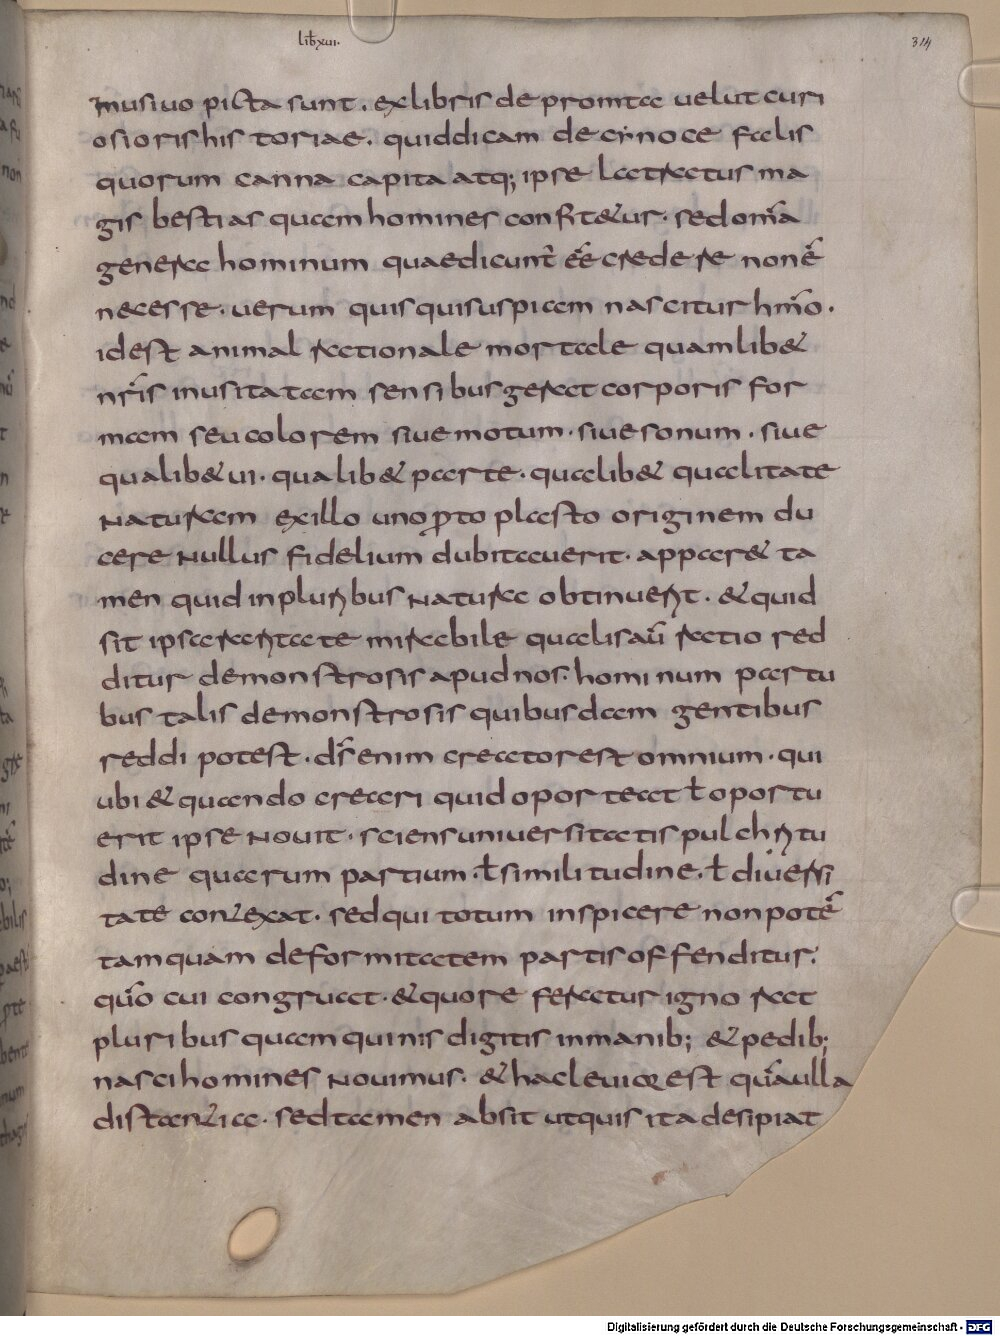 lib̄ xvi.
314
musiuo picta sunt. exlibris depromta uelut curi
osioris his toriae. quid dicam de cynocefalis
quorum canna capita atq; ipse latratus ma
gis bestias quam homines confit&ur. sed om̄a
genera hominum quae dicunt̄ eē̄ credere non ē
necesse. uerum quisquis uspiam nascitur hōmo.
id est animal rationale mortale quamlib&
nr̄is inusitatam sensibus gerat corporis for
mam seu colorem siue motum. siue sonum. siue
qualib& ui. qualib& parte. qualib& qualitate
naturam exillo uno ꝓto plasto originem du
cere nullus fidelium dubitauerit. appar& ta
men quid inpluribus natura obtinuerit. & quid
sit ipsa raritate mirabile qualis aū ratio red
ditur demonstrosis apud nos. hominum partu
bus talis demonstrosis quibusdam gentibus
reddi potest. ds̄ enim creator est omnium. qui
ubi & quando creari quid oporteat ł oportu
erit ipse nouit. sciens uniuersitatis pulchritu
dine quarum partium. ł similitudine. ł diuersi
tate contexat. sed qui totum inspicere non potē
tamquam deformitatem partis offenditur.
qūo cui congruat. & quo referatur ignorat
pluribus quam quinis digitis inmanib; & pedib;
nasci homines nouimus. & haec leuior est quā ulla
distantia. sed tamen absit ut quis ita desipiat
Digitalisierung gefördert durch die Deutsche Forschungsgemeinschaft - DFG